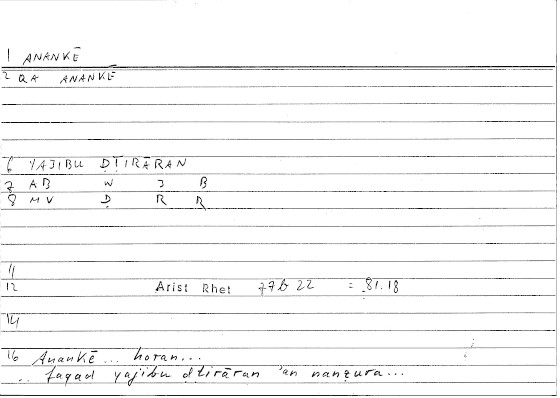 1 ANANKĒ
2 QA ANANKĒ
6 YAJIBU ḌṬIRĀRAN
7 AB W J B
8 MV Ḍ R R
11
12 Arist Rhet 77b 22 = 81.18
14
16 Anankē ... horan...
.. faqad yajibu ḍṭirāran 'an nanẓura...